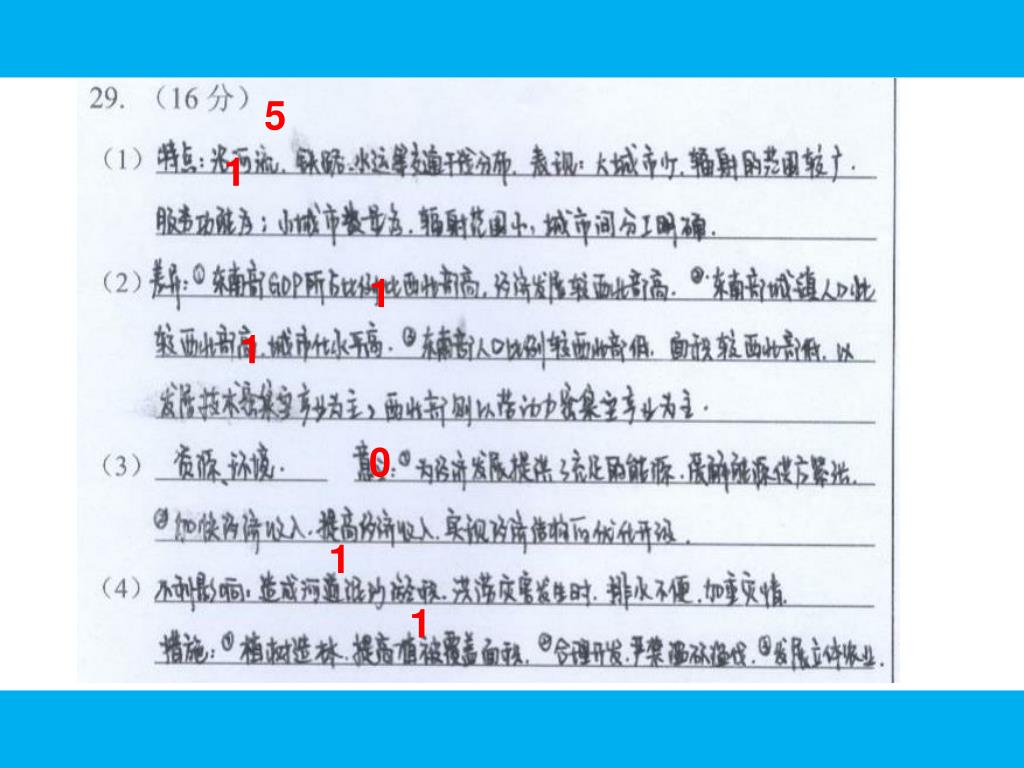 29. （16分） 5
（1） 特点：沿河流、铁路、水运等交通干线分布. 表现：大城市少, 辐射的范围较广.
1
服务功能多；小城市数量多, 辐射范围小, 城市间分工明确.
（2） 差异：①东南部GDP所占比例比西北部高, 经济发展较西北部高. ②东南部城镇人口比
1
较西北部高, 城市化水平高. ③东南部人口比例较西北部低, 面积较西北部低, 以
1
发展技术密集型产业为主, 西北部则以劳动力密集型产业为主.
（3） 资源、环境. 意义：①为经济发展提供了充足的能源, 缓解能源供应紧张.
0
②加快经济收入, 提高经济收入, 实现经济结构的优化升级.
1
（4） 不利影响：造成河道泥沙淤积, 洪涝灾害发生时, 排水不便, 加重灾情.
1
措施：①植树造林, 提高植被覆盖面积. ②合理开发, 严禁滥砍滥伐. ③发展立体农业.